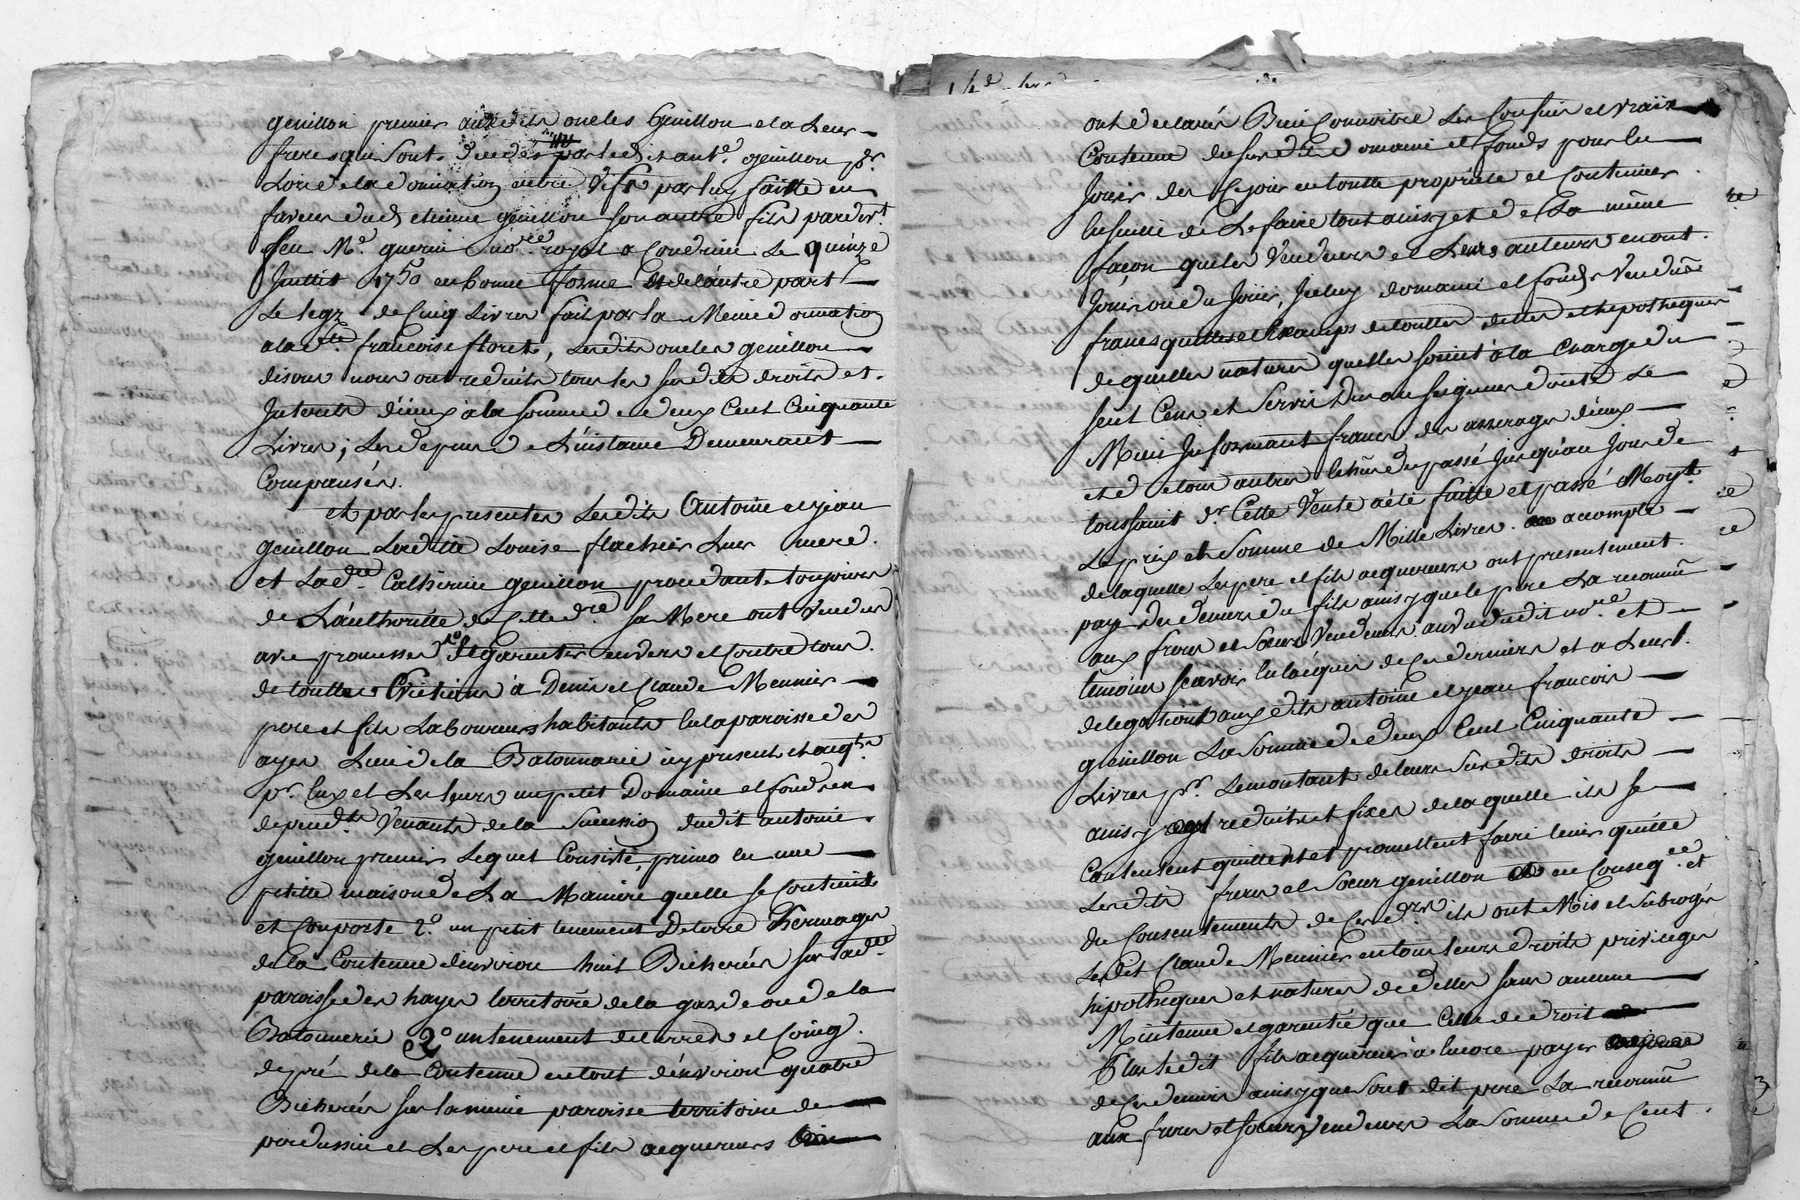 genillon premier auxdits oncles Genillon et a leurs
freres qui sont deues par ledit ant.e genillon p.er
Lors de la donnation entre vifs par luy faitte en
faveur dud etienne genillon son autre fils pardev.t
feu M.e guerin no.re royal a Condrieu le quinze
Juillet 1750 en bonne forme et de lautre part
Le legz de Cinq Livres fait par la Meme donnation
a lad.te francoise floret, Lesdits oncles genillon
disons nous ont reduits tous les susdits droits et
Interets d'iceux a la somme de deux Cent Cinquante
Livres; Les depens de L'instance Demeurant
Compansés.
et par les presentes Lesdits Antoine et jean
genillon Laditte Louise flachier Leur mere
et Lad.te Catherine genillon procedante toujours
de L'authoritté de Cette d.re sa Mere ont vendus
avec promesses de Garentir envers et Contre tous
de touttes Evictions à Denis et Claude Meunier
pere et fils Laboureurs habitants en la paroisse des
ayes Lieu de la Batonnarie icy present et acq.ts
p.r Eux et Les leurs un petit Domaine et fonds en
depend.ts Venants de la Succession dudit antoine
genillon premier Lequel Consiste, primo en une
petitte maison de La Maniere quelle se Contient
et Comporte 2.o un petit tenement De terre hermages
de la Contenue denviron huit Bicherées sur lad.te
paroisse des hayes territoire de la garde ou de la
Batonnerie 2o un tenement de terres et Coing
de pré de la Contenue en tout d'environ quatre
Bicherées sur la meme paroisse territoire de
perdussin et Les pere et fils acquereurs
ont declarés Bien Connoitre Les Confins et vraix
Contenue du susdit domaine et fonds pour en
Jouir des Ce jour en toutte propriété et Continuer
ensuitte de Le faire tout ainsy et de La même
façon que les Vendeurs et Leurs auteurs en ont
Jouis ou du Joüir, Iceluy domaine et fonds Vendus
francs quittes et Exempts de touttes dettes et hepotheques
de quelles natures quelles soient à la Charge du
seul Cens et Servis Dus au seigneur direct Le
Mieu Informant francs des arrerages d'iceux
et de tous autres du passé Jusqu'au Jour de
toussaint d.r Cette Vente a été faitte et passé Moy.t
Le prix et Somme de Mille Livres. acompte
de laquelle Les pere et fils acquereurs ont presentement
payé des deniers du fils ainsy que le pere La reconnu
aux freres et sœur Vendeurs au vu dudit no.re et
temoins scavoir en lacquis de Ces derniers et a Leurs
delegations auxdits antoine et jean francois
genillon La Somme de deux Cent Cinquante
Livres p.r Le montant de leurs Susdits droits
ainsy reduits et fixés de laquelle ils se
Contentent quittent et promettent faire tenir quitte
Lesdits freres et Sœur genillon en Conseq.ce et
du Consentement de Ces d.ers ils ont Mis et Subrogés
Ledit Claude Meunier en tous leurs droits privileges
hipotheques et natures dicelles sans aucune
Maintenue et garentie que Celle de droit
Plus ledit fils acquereur a encore payer
de Ces deniers ainsy que Sont dit pere La reconnu
aux freres et sœurs Vendeurs La somme de Cent